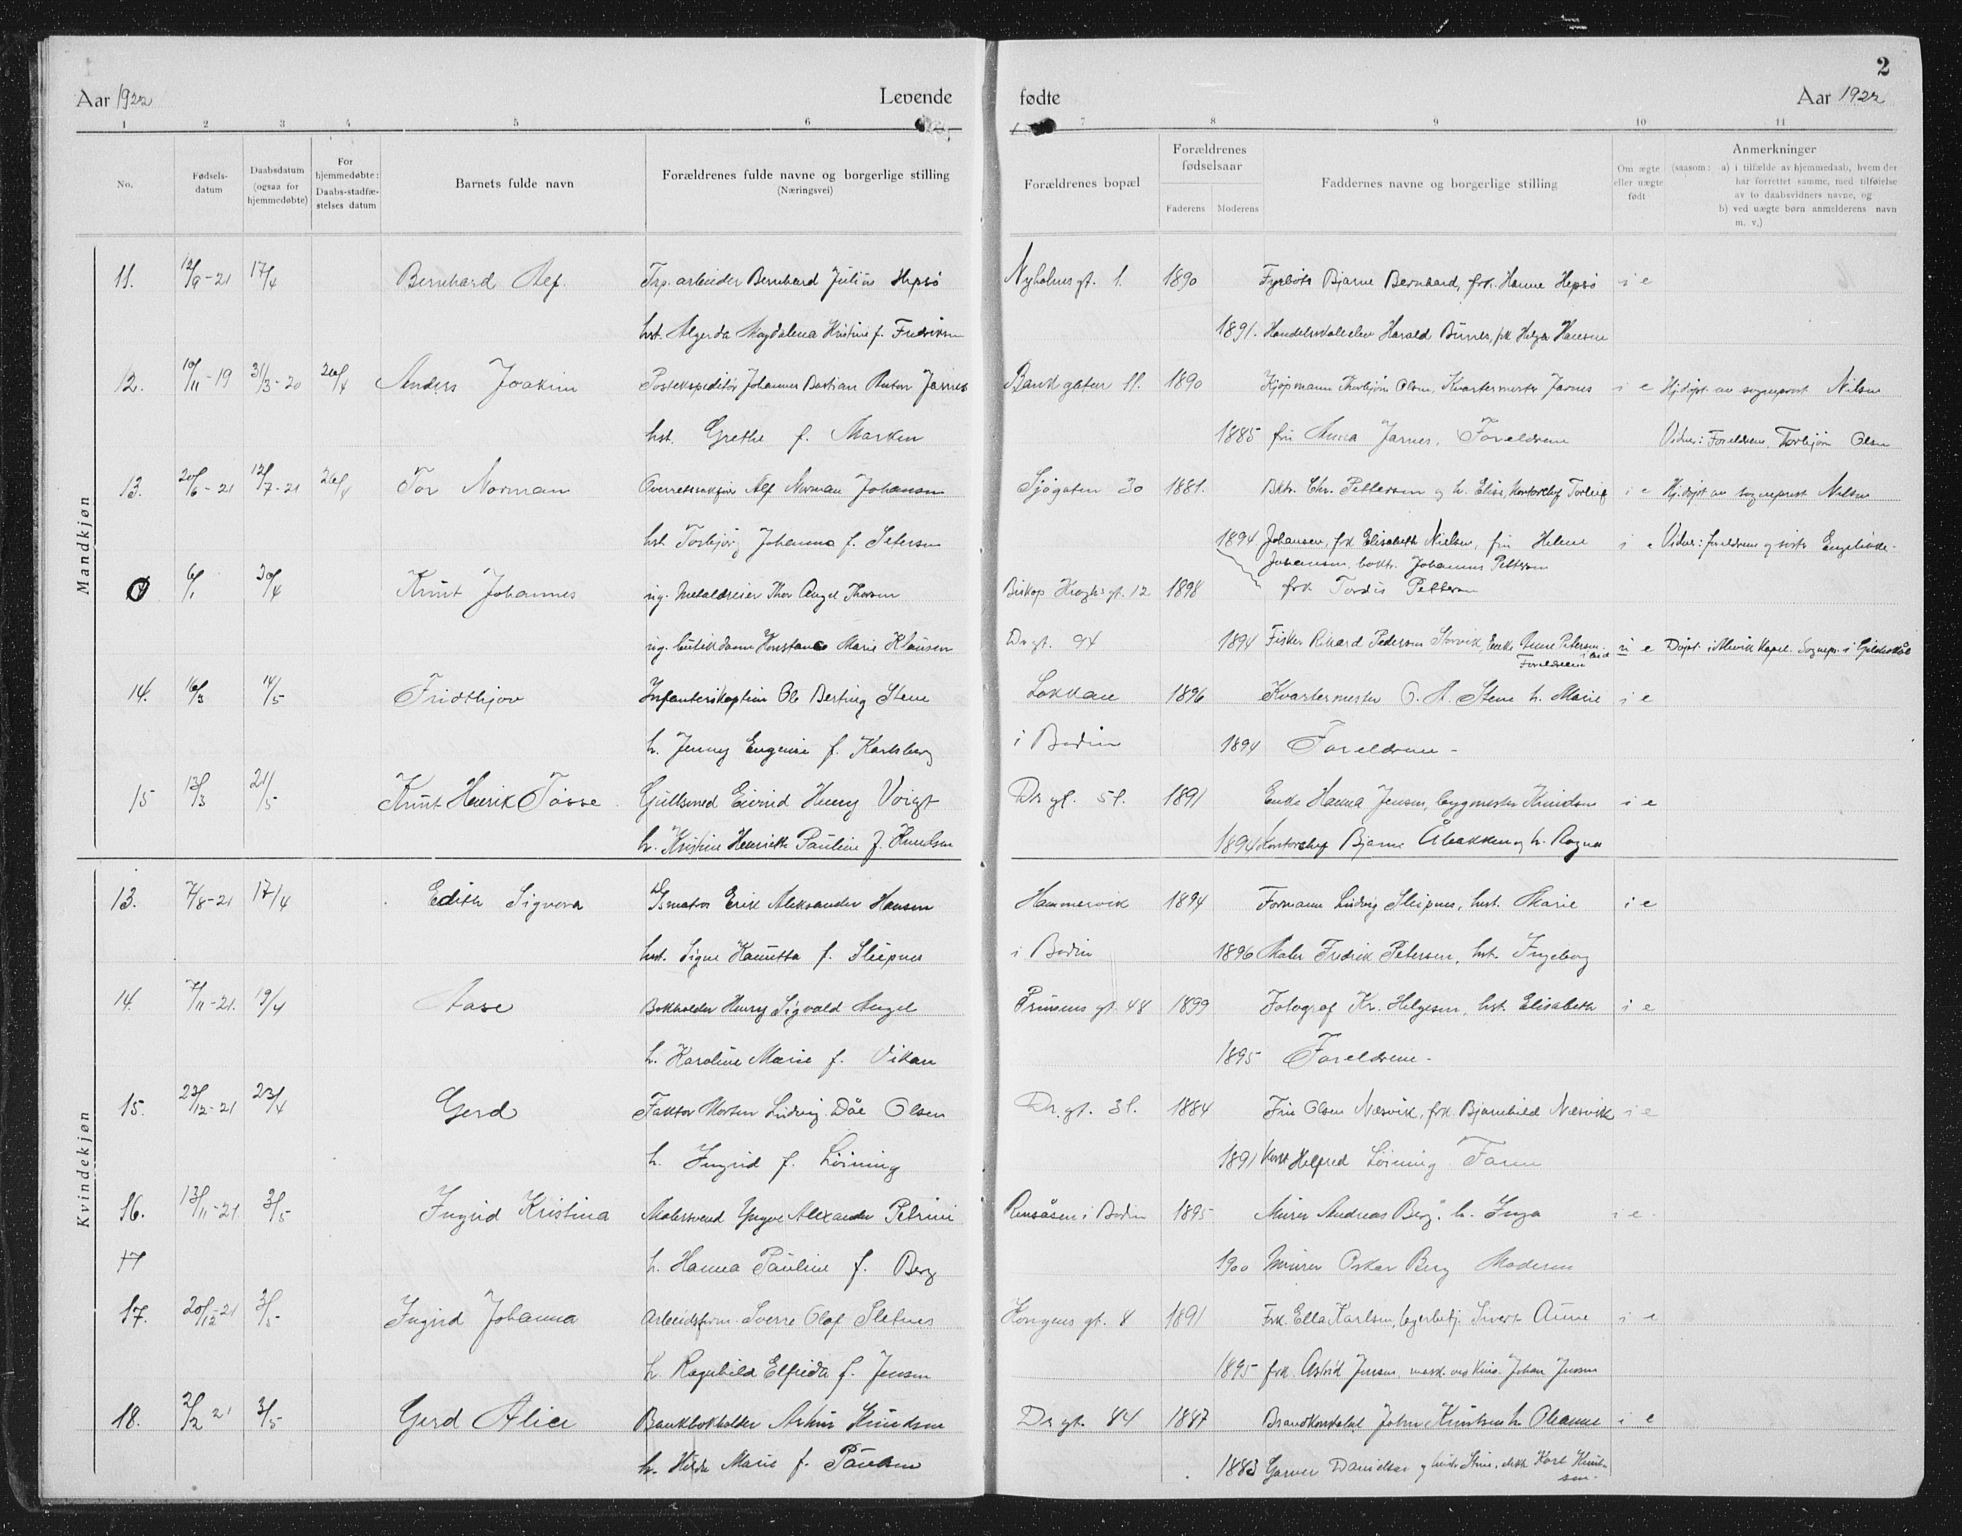 Aar 1922 Levende
1 2 3 4 5 6
No. Fødsels-datum Daabsdatum (ogsaa for hjemmedøbte) For hjemmedøbte: Daabs-stadfæstelses datum Barnets fulde navn Forældrenes fulde navne og borgerlige stilling (Næringsvei)
Mandkjøn
11. 12/9-21 17/4 Bernhard Alf. Trp. arbeider Bernhard Julius Hepsø
hst. Algerda Magdalena Kristine f. Fredriksen
12. 10/11-19 31/3-20 26/4 Anders Joakim Postekspeditør Johannes Bastian Anton Jarnes
hst. Grethe f. Marken
13. 20/6-21 12/7-21 26/4 Tor Norman Overretssakfører Alf Norman Johansen
hst. Torbjørg Johanna f. Petersen
6/1 30/4 Knut Johannes ug. Metaldreier Thor Angel Thorsen
ug. butikdame Konstance Marie Klausen
14. 16/3 14/5 Fridthjov Infanterikaptein Ole Berting Stene
h. Jenny Eugenie f. Karlsberg
15 13/3 21/5 Knut Henrik Tosse Guldsmed Eivind Henry Voigt
h. Kristine Henriette Pauline f. Knudsen
Kvindekjøn
13. 7/8-21 17/4 Edith Signora Ismatros Erik Aleksander Hansen
hst. Signe Hanutta f. Sleipnes
14. 7/11-21. 19/4 Aase Bokholder Henry Sigvald Angel
h. Karoline Marie f. Vikan
15. 22/12-21 23/4 Gerd Faktor Morten Ludvig Dåe Olsen
h. Ingrid f. Löining
16. 13/11-21 3/5 Ingrid Kristina Malersvend Yngve Alexander Petrini
17 h. Hanna Pauline f. Berg
17. 20/12-21 3/5 Ingrid Johanna Arbeidsform. Sverre Olaf Sletnes
h. Ragnhild Elfrida f. Jensen
18. 2/2 21 3/5 Gerd Alice Bankbokholder Arthur Knudsen
h. Hilda Marie f. Paulsen
2
fødte Aar 1922
7 8 9 10 11
Forældrenes bopæl Forældrenes fødselsaar Faderens Moderens Faddernes navne og borgerlige stilling Om ægte eller uægte født Anmerkninger (saasom: a) i tilfælde av hjemmedaab, hvem der har forrettet samme, med tilføielse av to daabsvidners navne, og b) ved uægte børn anmelderens navn m. v.)
Nyholmsgt. 1. 1890 Fyrbøter Bjarne Bernhard, frk. Hanne Hepsø i e
1891. Handelsskoleelev Harald Burres, frk Helga Hansen
Bankgaten 11. 1890 Kjøpmann Thorbjørn Olsen, Kvartermester Jarnes i e Hj.døpt av sogneprest Nilsen
1885 fru Anna Jarnes, Foreldrene Vidner: Foreldrene, Torbjørn Olsen
Sjøgaten 30 1881. Bktr. Chr. Pettersen og h. Elise, Kontorchef Torleif i e Hj.døpt av sogneprest Nilsen
1894 Johansen, frk Elisabeth Nielsen, fru Helene i e Vidner: foreldrene og søster Engelikke-
Johansen, boktr. Johannes Pettersen
Biskop Kroghsgt. 12 1898 frk Tordis Pettersen
Dr gt. 94 1894 Fisker Rikard Pedersen Storvik, Enke Anne Petersen u e Døpt i Mevik kapel. Sognepr. i Gildeskål
Foreldrene
Løkkan 1896 Kvartermester O. A. Stene h. Marie i e
i Bodin 1894 Foreldrene -
Dr gt. 51. 1891 Enke Hanna Jensen, byggmester Knudsen i e
1894 Kontorchef Bjarne Åbakken og h. Ragna
Hammervik 1894 Formann Ludvig Sleipnes, hst. Marie i e
i Bodin 1896 Maler Fredrik Petersen, hst. Ingeborg
Prinsens gt. 48 1899 Fotograf Kr. Helgesen, hst. Elisabeth i e
1895 Foreldrene -
Dr. gt. 31. 1884 Fru Olsen Næsvik, frk. Bjarnhild Næsvik i e
1891 Helfred Löining Faren
Rensåsen i Bodin 1895 Murer Andreas Berg, h. Inga i e
1900 Murer Oskar Berg Moderen
Kongens gt. 8 1891 Frk. Ella Karlsen, lagerbetj. Sivert Aune i e
1895 frk. Astrid Jensen, Johan Jensen
Dr gt. 84 1887 Brandkonstabel Johan Knutsen h. Oleanne i e
1883 Garver Danielsen og hustr Stine, Karl Knudsen.